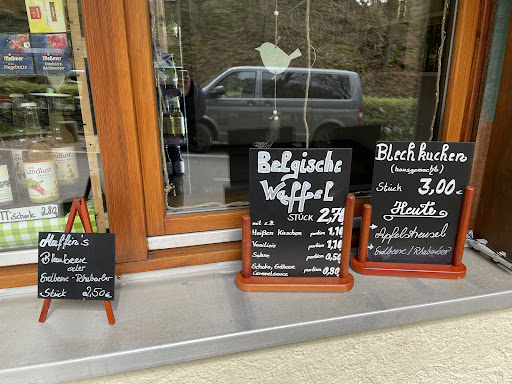 Meßmer
Meßmer
Landlust
TTischorle 2,80
Muffin's
Blaubeere
oder
Erdbeere-Rhabarber
Stück 2,50
Belgische
Waffel
STÜCK 2,70
mit z.B.
Heißen Kirschen portion 1,10
Vanilleeis portion 1,10
Sahne portion 0,50
Schoko, Erdbeere
Caramelsauce portion 0,50
Blechkuchen
(hausgemacht)
Stück 3,00
Heute
→ Apfelstreusel
→ Erdbeere/Rhabarber